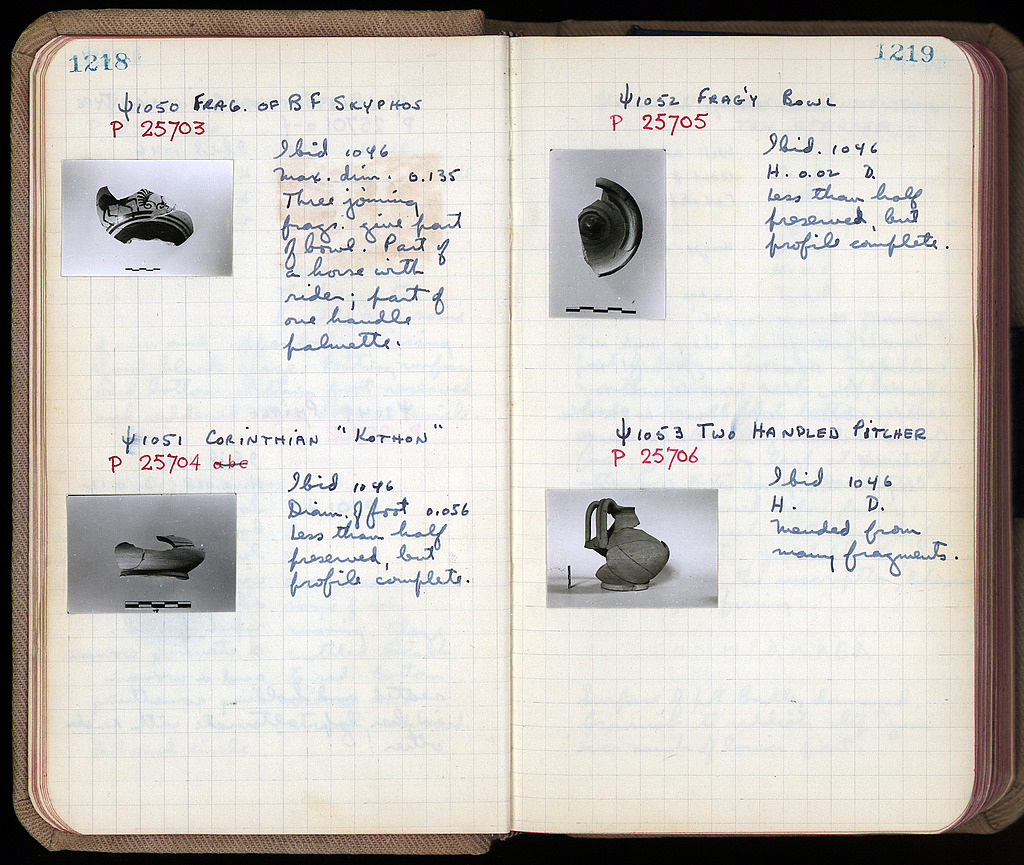 1218
ψ1050 FRAG. OF BF SKYPHOS
P 25703
Ibid 1046
Max. dim. 0.135
Three joining
frags. give part
of bowl. Part of
a horse with
rider; part of
one handle
palmette.
ψ1051 CORINTHIAN "KOTHON"
P 25704 abc
Ibid 1046
Diam. of foot 0.056
Less than half
preserved, but
profile complete.
1219
ψ1052 FRAG'Y BOWL
P 25705
Ibid. 1046
H. 0.02 D.
Less than half
preserved, but
profile complete.
ψ1053 TWO HANDLED PITCHER
P 25706
Ibid 1046
H. D.
Mended from
many fragments.